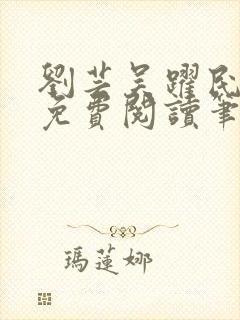 劉芸吴躍民
免費閱讀筆
瑪蓮娜